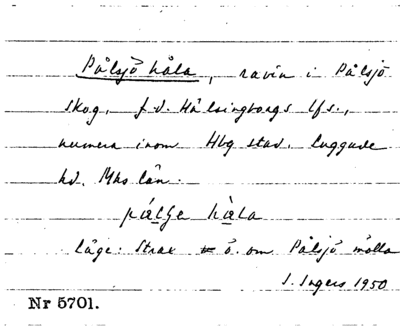 Pålsjö håla, ravin i Pålsjö
skog, f.d. Hälsingborgs lfs.,
numera inom Hbg stad. Luggude
hd. Mhs län.
håla
läge: Strax ö. om Pålsjö mölla
I. Ingers 1950
Nr 5701.